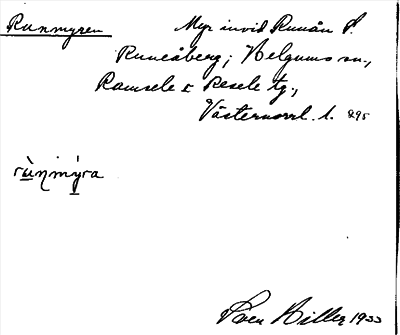 Runmyren
Myr invid Runån S.
Runeåberg; Helgums sn.,
Ramsele & Resele tg.,
Västernorrl. l. 295
rùn̠mýra
Sven Hiller 1933